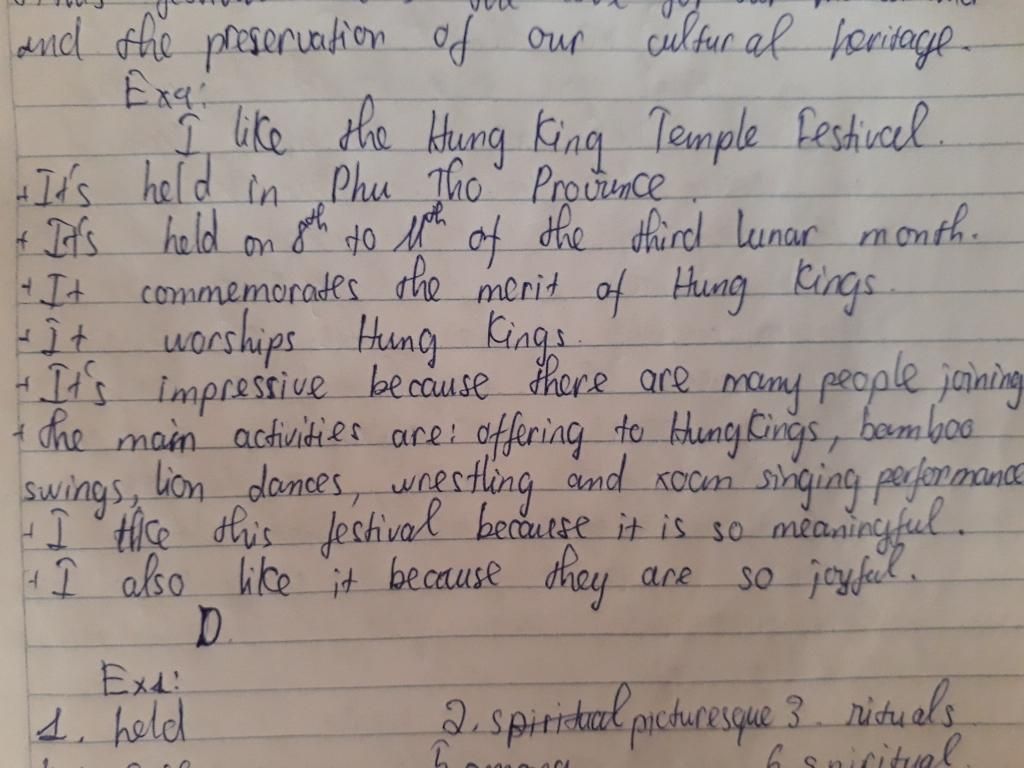 and the preservation of our cultural heritage.
Ex4:
I like the Hung King Temple Festival.
+ It's held in Phu Tho Province.
+ It's held on 8th to 11th of the third lunar month.
+ It commemorates the merit of Hung Kings.
+ It worships Hung Kings.
+ It's impressive because there are many people joining
+ the main activities are: offering to Hung Kings, bamboo
swings, lion dances, wrestling and xoan singing performance
+ I like this festival because it is so meaningful.
+ I also like it because they are so joyful.
D
Ex1:
1. held 2. spiritual picturesque 3. rituals
6. spiritual